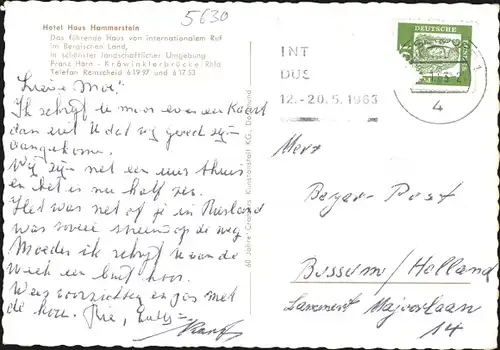 5630
Hotel Haus Hammerstein
Das führende Haus von internationalem Ruf
im Bergischen Land,
in schönster landschaftlicher Umgebung
Franz Horn - Kräwinklerbrücke/Rhld
Telefon Remscheid 61997 und 61753
60 Jahre Cramers Kunstanstalt KG, Dortmund
DEUTSCHE
INT
DUS
12.-20.5.1963
4
Ik schryf u maar even een kaart
dan ziet u dat wy goed zyn
aangekomen.
Wy zyn net een uur thuis
en het is nu half zes.
Het was net of je in Rusland
was zoveel sneeuw op de weg
Moeder ik schryf u van de
week een brief hoor.
Wees voorzichtig en pas met
de hoor.
Bussum / Holland
Majoorlaan
14